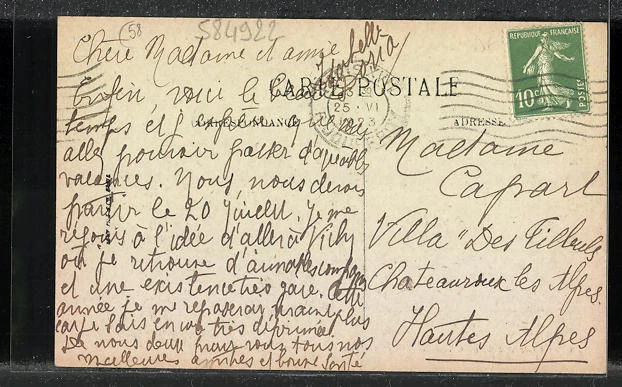 (58
584922
Chère Madame et amie
Enfin voici le beau
temps et j'espère que vous
allez pouvoir passer d'agréables
vacances. Nous, nous devons
partir le 20 juillet. Je me
réjouis à l'idée d'aller à Vichy
où je retrouve d'aimables
et une existence très gaie. Cette
année je me reposerai
car je suis encore très déprimée
De nous deux pour vous tous nos
meilleures amitiés et bonne santé
CARTE POSTALE
CORRESPONDANCE
ADRESSE
25 · VI
REPUBLIQUE FRANÇAISE
10c
POSTES
Madame
Capart
Villa "Des Tilleuls
Chateauroux les Alpes
Hautes Alpes